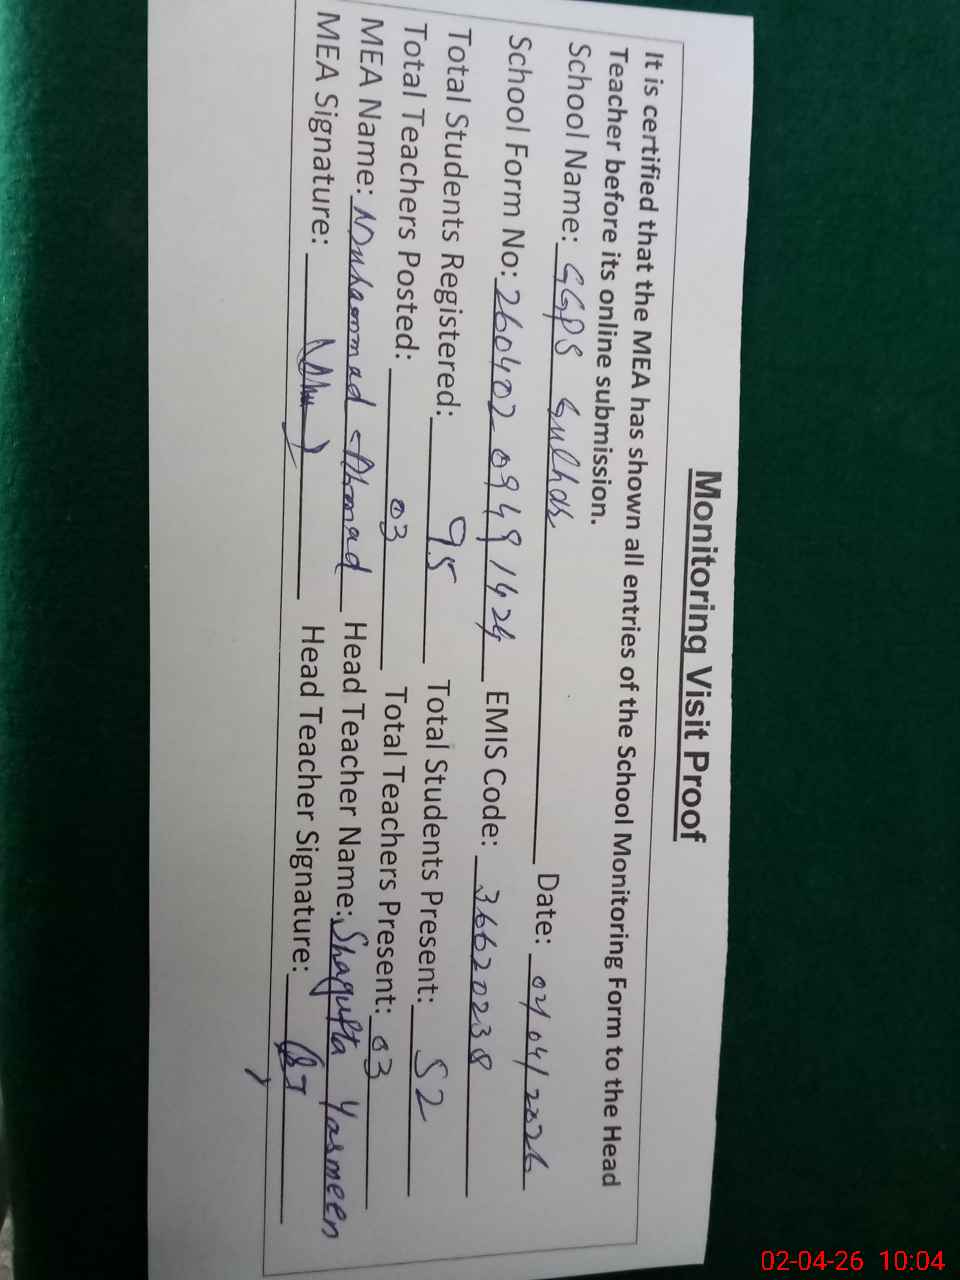 Monitoring Visit Proof
It is certified that the MEA has shown all entries of the School Monitoring Form to the Head
Teacher before its online submission.
School Name: GGPS Date: 02/04/2026
School Form No: 260402 0949 1424 EMIS Code: 36620238
Total Students Registered: 95 Total Students Present: 52
Total Teachers Posted: 03 Total Teachers Present: 03
MEA Name: Muhammad Ahmad Head Teacher Name: Shagufta Yasmeen
MEA Signature: Head Teacher Signature:
02-04-26 10:04